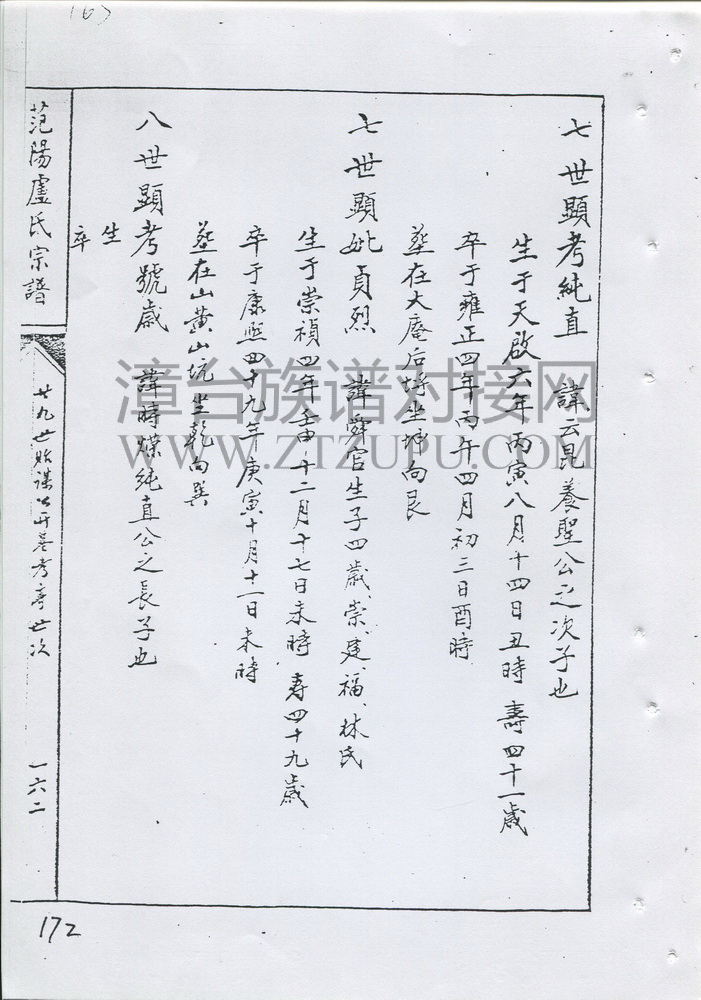 七世顯考純直 諱云昆養聖公之次子也
生于天啟六年丙寅八月十四日丑時 壽四十一歲
卒于雍正四年丙午四月初三日酉時
葬在大庵后 坐坤向艮
七世顯妣貞烈 諱舜官生子四歲、崇、建、福、林氏
生于崇禎四年壬申十二月十七日未時 寿四十九歲
卒于康熙四十九年庚寅十月十一日未時
葬在山黃山坑坐乾向巽
八世顯考號歲 諱時煤純直公之長子也
生
卒
范陽盧氏宗譜
廿九世 謀公开基考序世次
一六二
172
漳台族谱对接网
WWW.ZTZUPU.COM